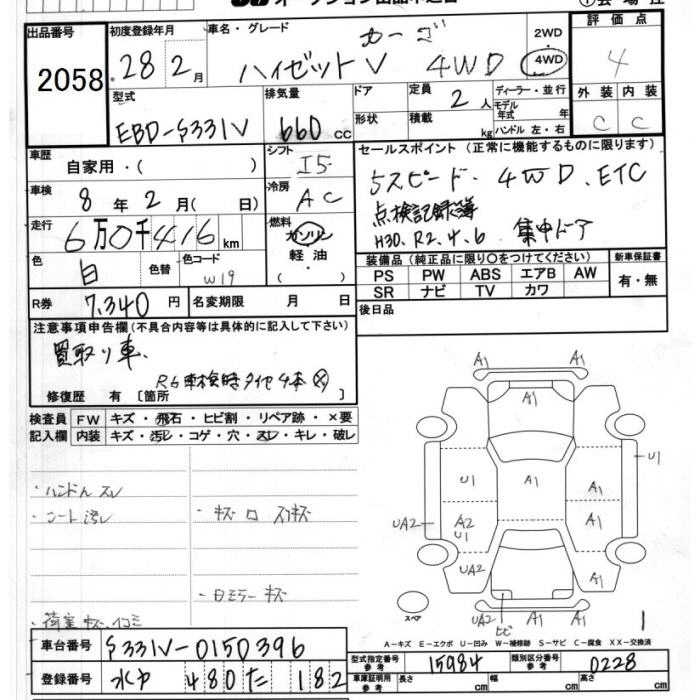 出品番号 2058
初度登録年月 28年2月
車名・グレード ハイゼットV カーゴ 4WD
2WD
4WD
評価点 4
外装 C 内装 C
型式 EBD-S331V
排気量 660 cc
ドア 形状
定員 2人
積載 kg
ディーラー・並行
モデル年式 年
ハンドル 左・右
車歴 自家用・( )
シフト I5
車検 8年2月( 日)
冷房 AC
走行 6万0千416km
燃料 ガソリン 軽油 ( )
色 白 色替 色コード W19
R券 7,340円 名変期限 月 日
セールスポイント (正常に機能するものに限ります)
5スピード、4WD、ETC
点検記録簿
H30、R2.4.6 集中ドア
装備品 (純正品に限り○をつけてください)
新車保証書
PS PW ABS エアB AW
有・無
SR ナビ TV カワ
後日品
注意事項申告欄(不具合内容等は具体的に記入して下さい)
買取り車、
R6車検時タイヤ4本
修復歴 有 [箇所 ]
検査員 FW キズ・飛石・ヒビ割・リペア跡・×要
記入欄 内装 キズ・汚レ・コゲ・穴・スレ・キレ・破レ
・ハンドルスレ
・シート汚レ
・キズ ロ スリキズ
・日ミラー キズ
・荷室 キズ、イコミ
A1 A1
A1
U1
U1 A1 A1
UA2 A2 A1 A1
U1
UA2 A1
スペア
UA2 ヒビ A1 A1
1
A-キズ E-エクボ U-凹み W-補修跡 S-サビ C-腐食 XX-交換済
車台番号 S331V-0150396
登録番号 水戸 480 た 182
型式指定番号 参考 15984
類別区分番号 参考 0228
車庫証明用 参考 長さ cm 幅 cm 高さ cm